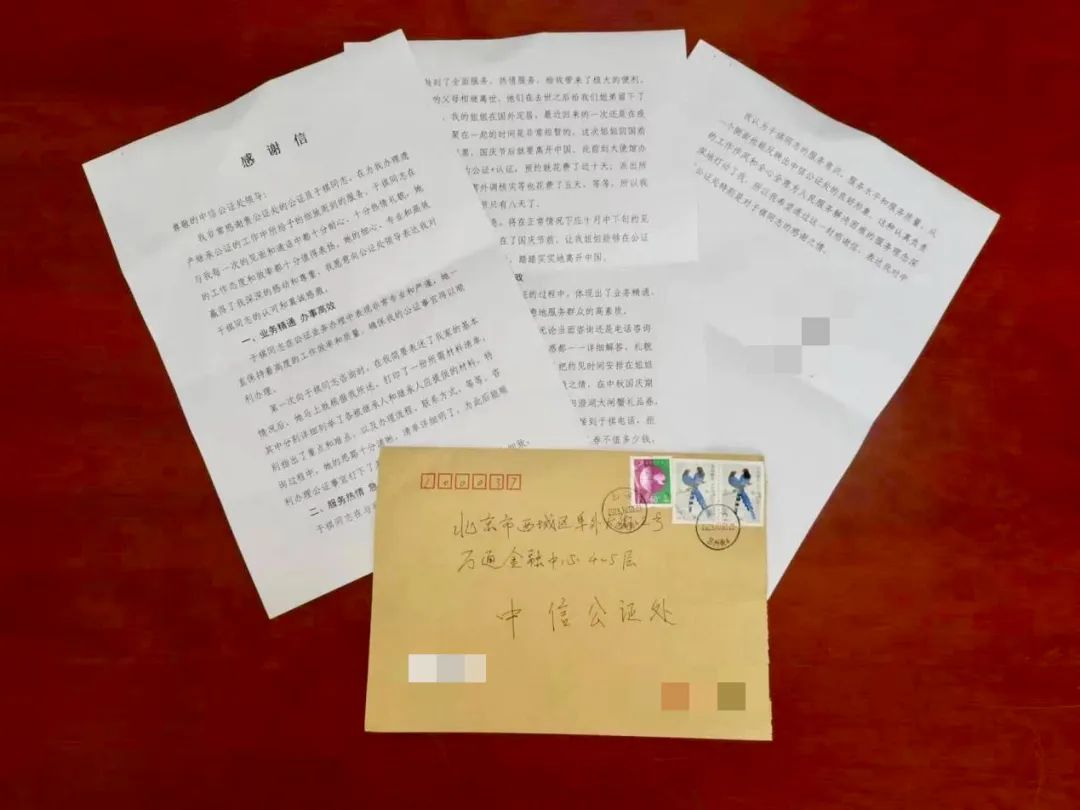 感谢信
尊敬的中信公证处领导:
我非常感谢贵公证处的公证员于棋同志,在为我办理遗
产继承公证的工作中所给予的细致周到的服务。于棋同志在
与我每一次的见面和通话中都十分耐心、十分热情礼貌,她
的工作态度和效率都十分值得表扬。她的细心、专业和高效
赢得了我深深的感动和尊重,我愿意向公证处领导表达我对
于棋同志的认可和真诚感激。
一、业务精通 办事高效
于棋同志在公证业务办理中表现非常专业和严谨,她一
直保持着高度的工作效率和质量,确保我的公证事宜得以顺
利办理。
第一次向于棋同志咨询时,在我简要表述了我家的基本
情况后,她马上就根据我所述,打印了一份所需材料清单,
其中分别详细列举了各被继承人和继承人应提供的材料,特
别指出了重点和难点,以及办理流程、联系方式,等等。咨
询过程中,她的思路十分清晰,清单详细明了,为此后能顺
利办理公证事宜打下了
二、服务热情
于棋同志在与
到了全面服务、热情服务,给我带来了极大的便利。
的父母相继离世,他们在去世之后给我们姐弟留下了
我的姐姐在国外定居,最近回来的一次还是在疫
聚在一起的时间是非常短暂的。这次姐姐回国前
国庆节后就要离开中国。此前到大使馆办
的公证+认证,预约就花费了近十天;派出所
外调核实等也花费了五天,等等,所以我
只有八天了。
将在正常情况下应十月中下旬的见
在了国庆节前,让我姐姐能够在公证
踏踏实实地离开中国。
的过程中,体现出了业务精通、
地服务群众的高素质。
无论当面咨询还是电话咨询
惑都一一详细解答,礼貌
把约见时间安排在姐姐
之情,在中秋国庆期
阳澄湖大闸蟹礼品券,
到于棋电话,拒
券不值多少钱,
我认为于棋同志的服务意识、服务水平和服务质量,从
一个侧面也能反映出中信公证处的良好形象。这种认真负责
的工作作风和全心全意为人民服务解决困难的服务理念深
深地打动了我,所以我希望通过这一封感谢信,表达我对中
公证处特别是对于棋同志的感谢之情。
100037
北京市西城区阜外大街2号
万通金融中心4-5层
中信公证处